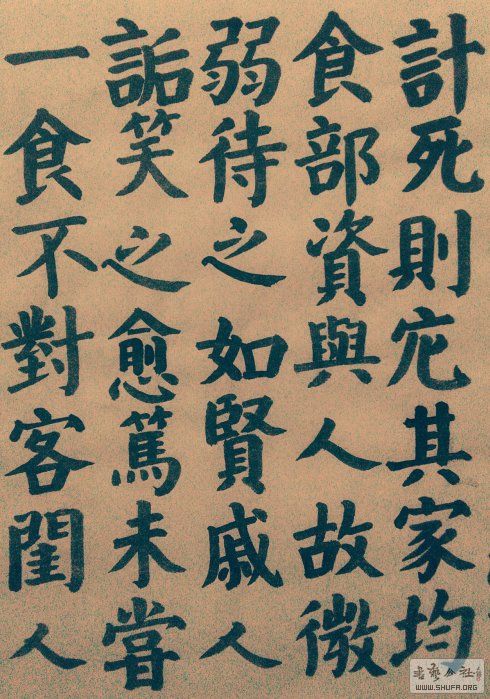 計死則其家均
食部資與人故微
弱待之如賢戚人
詬笑之愈篤未嘗
一食不對客閨人
書藝公社
WWW.SHUFA.ORG